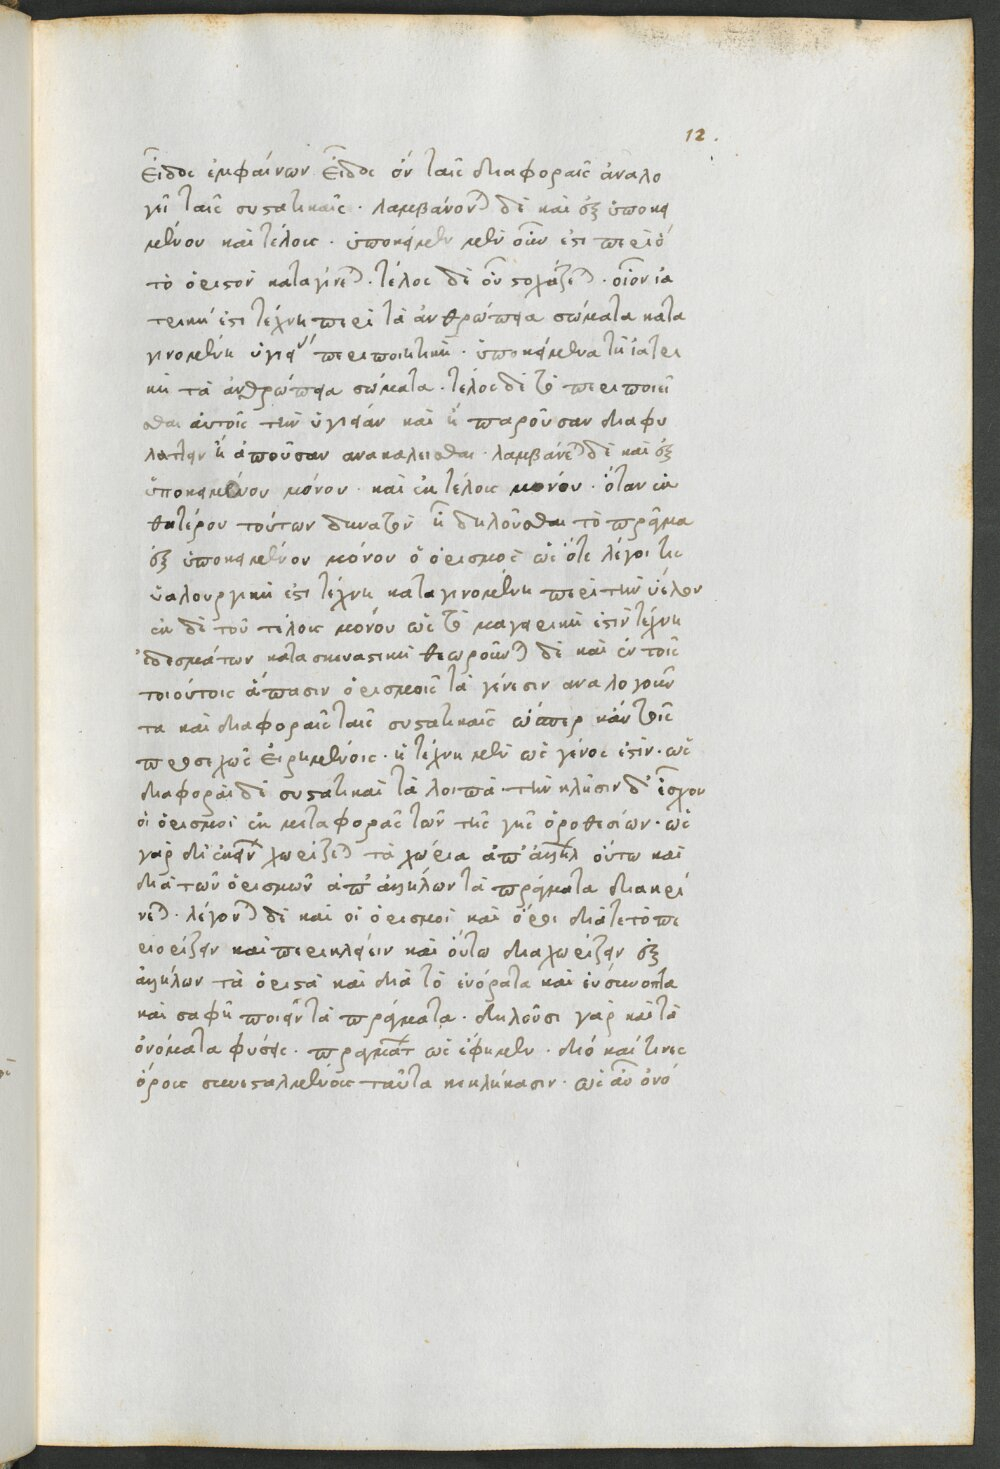 12.
εἶδος ἐμφαίνων εἶδος ὃν ταῖς διαφοραῖς ἀναλο
γεῖ ταῖς συστατικαῖς · λαμβάνονται δὲ καὶ ἐξ ὑποκει
μένου καὶ τέλους · ὑποκείμενον μὲν οὖν ἐστι περὶ ὃ
τὸ ὁριστὸν καταγίνεται · τέλος δὲ οὗ στοχάζεται · οἷον ἰα
τρική ἐστι τέχνη περὶ τὰ ἀνθρώπεια σώματα κατα
γινομένη ὑγιείας περιποιητική · ὑποκείμενα τῇ ἰατρι
κῇ τὰ ἀνθρώπεια σώματα · τέλος δὲ τὸ περιποιεῖ
σθαι αὐτοῖς τὴν ὑγιείαν καὶ ἢ παροῦσαν διαφυ
λάττειν ἢ ἀποῦσαν ἀνακαλεῖσθαι · λαμβάνεται δὲ καὶ ἐξ
ὑποκειμένου μόνου · καὶ ἐκ τέλους μόνου · ὅταν ἐκ
θατέρου τούτων δυνατὸν ᾖ δηλοῦσθαι τὸ πρᾶγμα
ἐξ ὑποκειμένου μόνου ὁ ὁρισμὸς ὡς ὅτε λέγοι τις
ὑαλουργική ἐστι τέχνη καταγινομένη περὶ τὴν ὕελον
ἐκ δὲ τοῦ τέλους μόνου ὡς τὸ μαγειρική ἐστιν τέχνη
ἐδεσμάτων κατασκευαστική θεωροῦνται δὲ καὶ ἐν τοῖς
τοιούτοις ἅπασιν ὁρισμοῖς τὰ γένεσιν ἀναλογοῦν
τα καὶ διαφοραῖς ταῖς συστατικαῖς ὥσπερ κἀν τοῖς
προσεχῶς εἰρημένοις · ἡ τέχνη μὲν ὡς γένος ἐστίν · ὡς
διαφοραὶ δὲ συστατικαὶ τὰ λοιπὰ · τὴν κλῆσιν δ' ἔσχον
οἱ ὁρισμοὶ ἐκ μεταφορᾶς τῶν τῆς γῆς ὁροθεσίων · ὡς
γὰρ δι' ἐκείνων χωρίζεται τὰ χωρία ἀπ' ἀλλήλων οὕτω καὶ
διὰ τῶν ὁρισμῶν ἀπ' ἀλλήλων τὰ πράγματα διακρί
νεται · λέγονται δὲ καὶ οἱ ὁρισμοὶ καὶ ὅροι διά τε τὸ πε
ριορίζειν καὶ περικλείειν καὶ οὕτω διαχωρίζειν ἐξ
ἀλλήλων τὰ ὁριστὰ καὶ διὰ τὸ εὐόρατα καὶ εὐσύνοπτα
καὶ σαφῆ ποιεῖν τὰ πράγματα · δηλοῦσι γὰρ καὶ τὰ
ὀνόματα φύσεις · πραγμάτων ὡς ἔφημεν · διό καί τινες
ὅρους συνεσταλμένους ταῦτα κεκλήκασιν · ὡς ἂν ὀνό